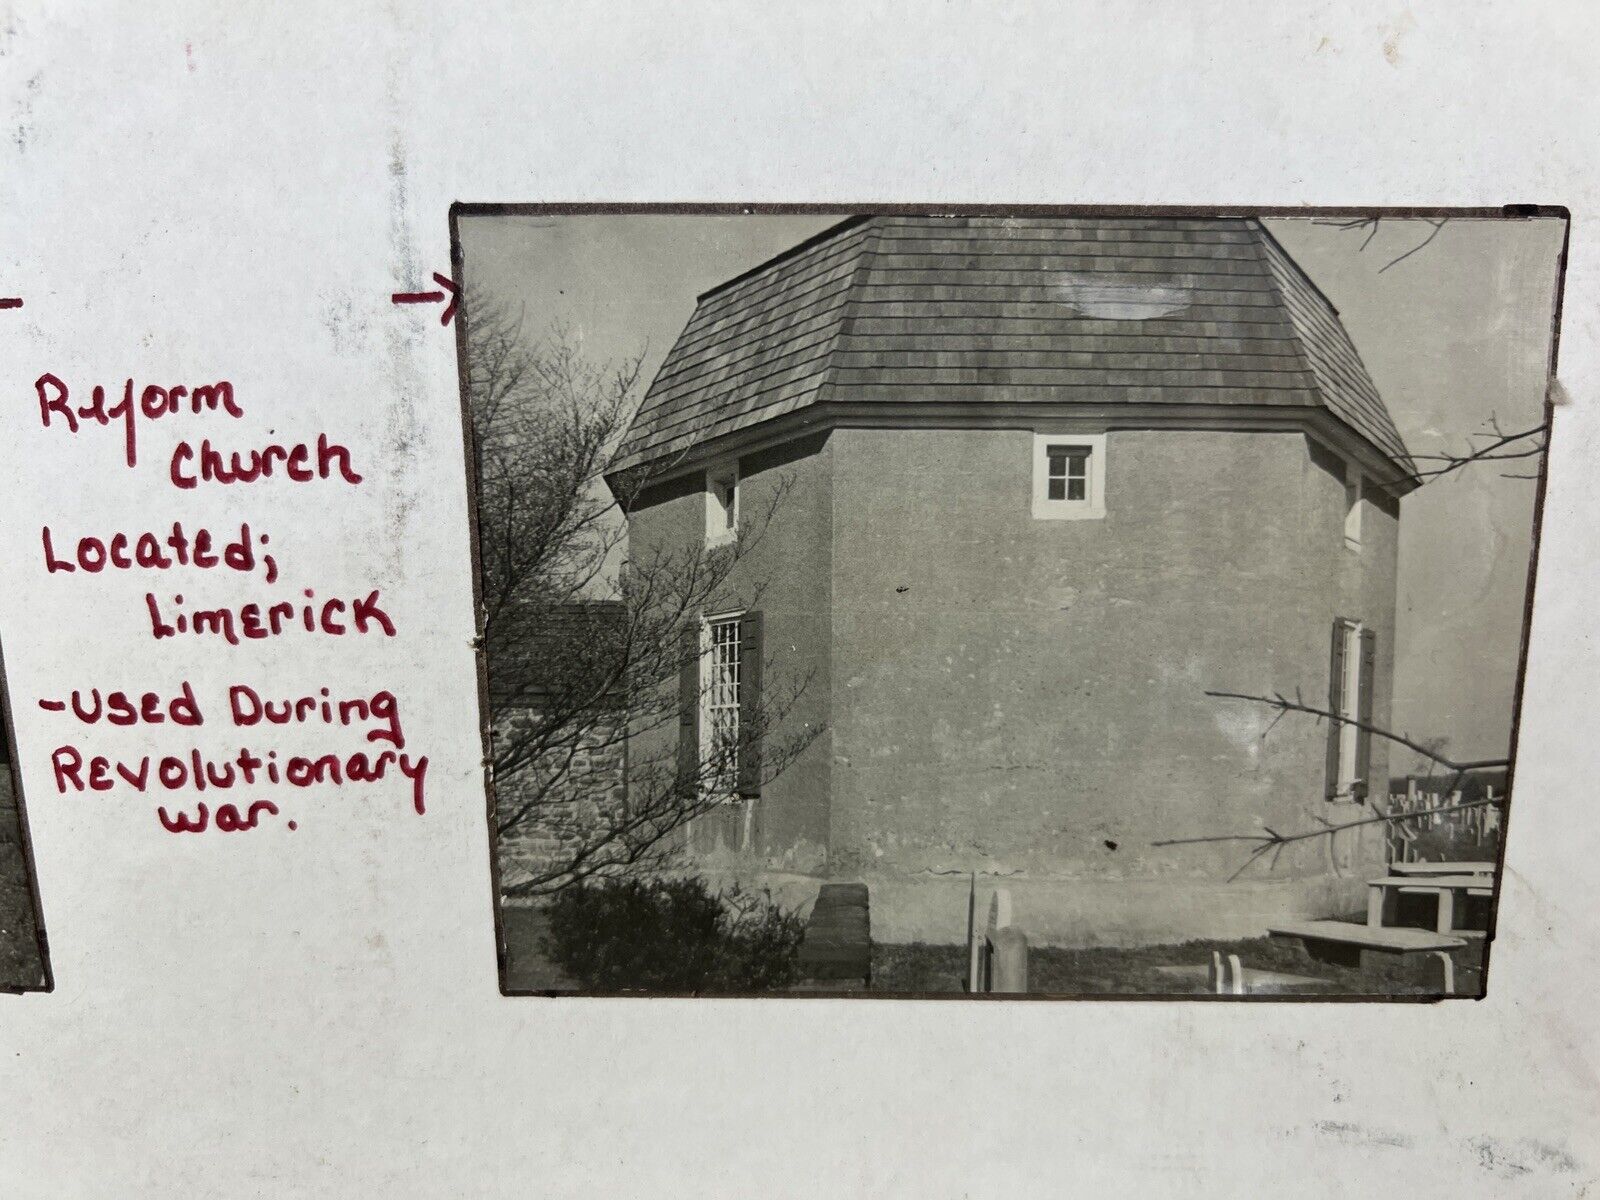 Reform
Church
Located;
Limerick
-used During
Revolutionary
war.